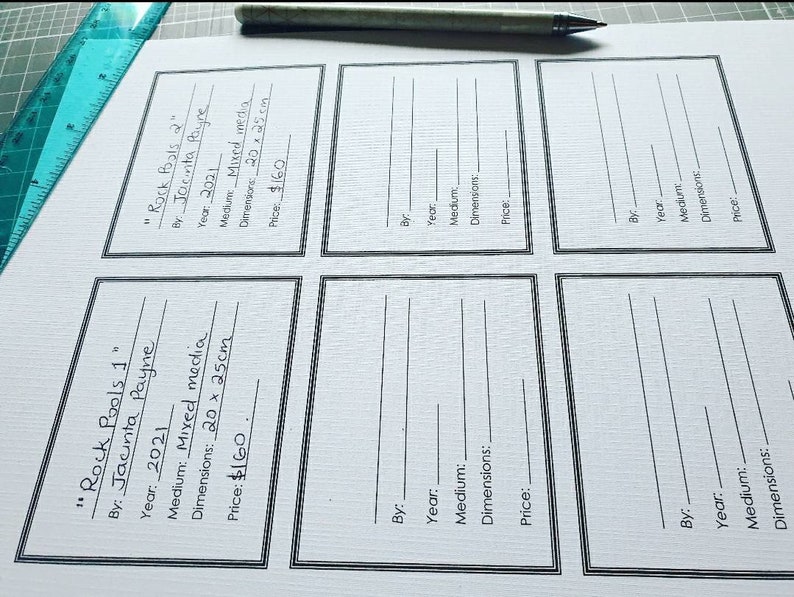 " Rock Pools 1 "
By: Jacinta Payne
Year: 2021
Medium: Mixed media
Dimensions: 20 x 25cm
Price: $160.
" Rock Pools 2 "
By: Jacinta Payne
Year: 2021
Medium: Mixed media
Dimensions: 20 x 25cm
Price: $160
By:
Year:
Medium:
Dimensions:
Price:
By:
Year:
Medium:
Dimensions:
Price:
By:
Year:
Medium:
Dimensions:
By:
Year:
Medium:
Dimensions:
Price: